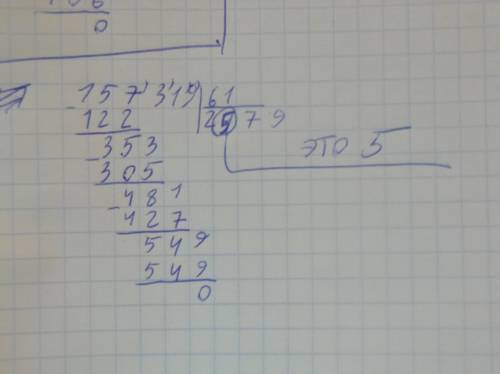 0
- 157319 | 61
122 | 2579
это 5
- 353
305
- 481
427
549
549
0